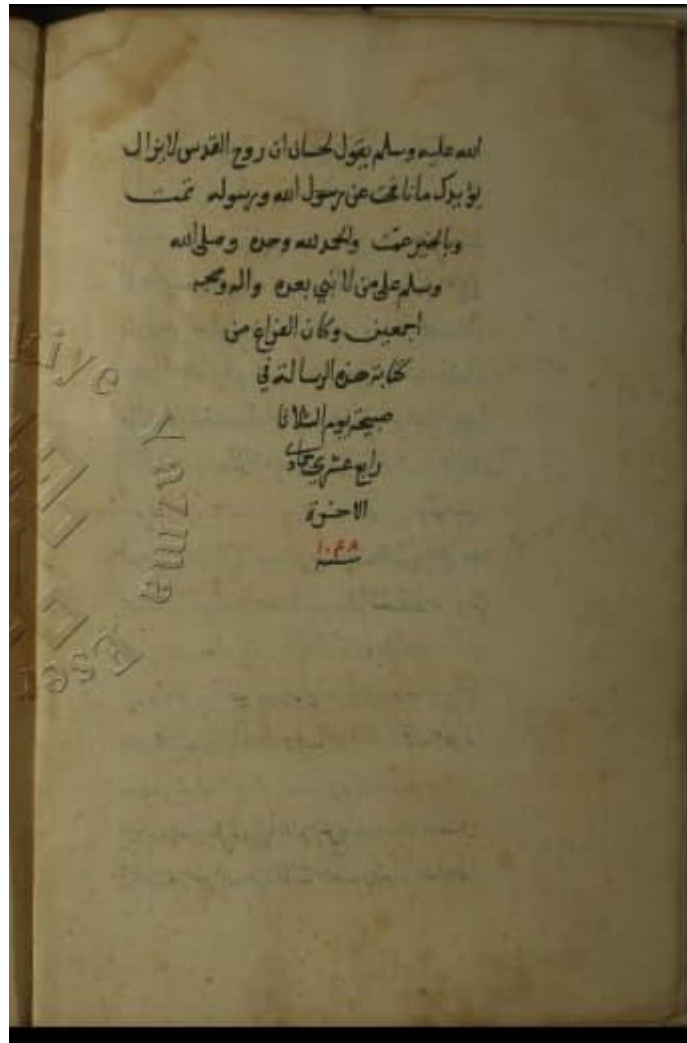 الله عليه وسلم يقول لحسان ان روح القدس لا يزال
يؤيدك ما نافحت عن رسول الله ورسوله تمت
وبالخير عمت والحمد لله وحده وصلى الله
وسلم على من لا نبي بعده واله وصحبه
اجمعين وكان الفراغ من
كتابة هذه الرسالة في
صبيحة يوم الثلاثا
رابع عشري جماد
الاخرة
سنة ١٠٤٨
Türkiye Yazma
Eser